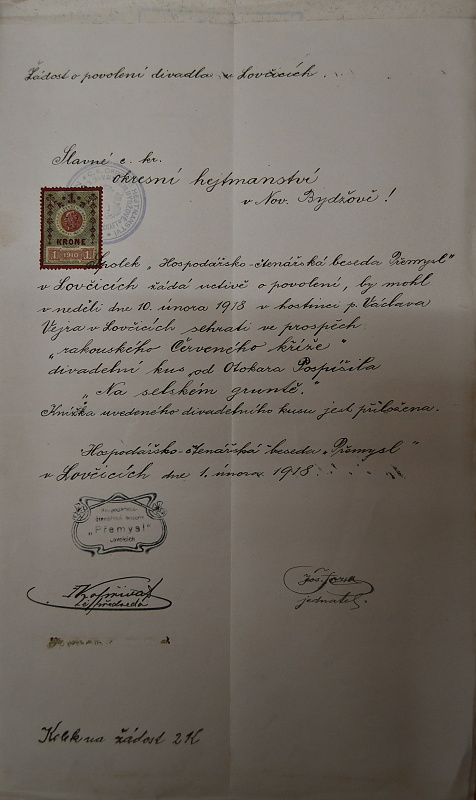 Žádost o povolení divadla v Lovčicích.
Slavné c. kr.
okresní hejtmanství
v Nov. Bydžově!
1
KRONE
1 1910 1
Spolek „Hospodářsko-čtenářská beseda Přemysl"
v Lovčicích žádá uctivě o povolení, by mohl
v neděli dne 10. února 1918 v hostinci p. Václava
Vejra v Lovčicích sehrati ve prospěch
„rakouského Červeného kříže"
divadelní kus od Otokara Pospíšila
„Na selském gruntě."
Knížka uvedeného divadelního kusu jest přiložena.
Hospodářsko-čtenářská beseda „Přemysl"
v Lovčicích dne 1. února 1918.
Hospodářsko-
čtenářská beseda
„Přemysl"
Lovčicích
předseda
Jos.
jednatel.
Kolek na žádost 2 K